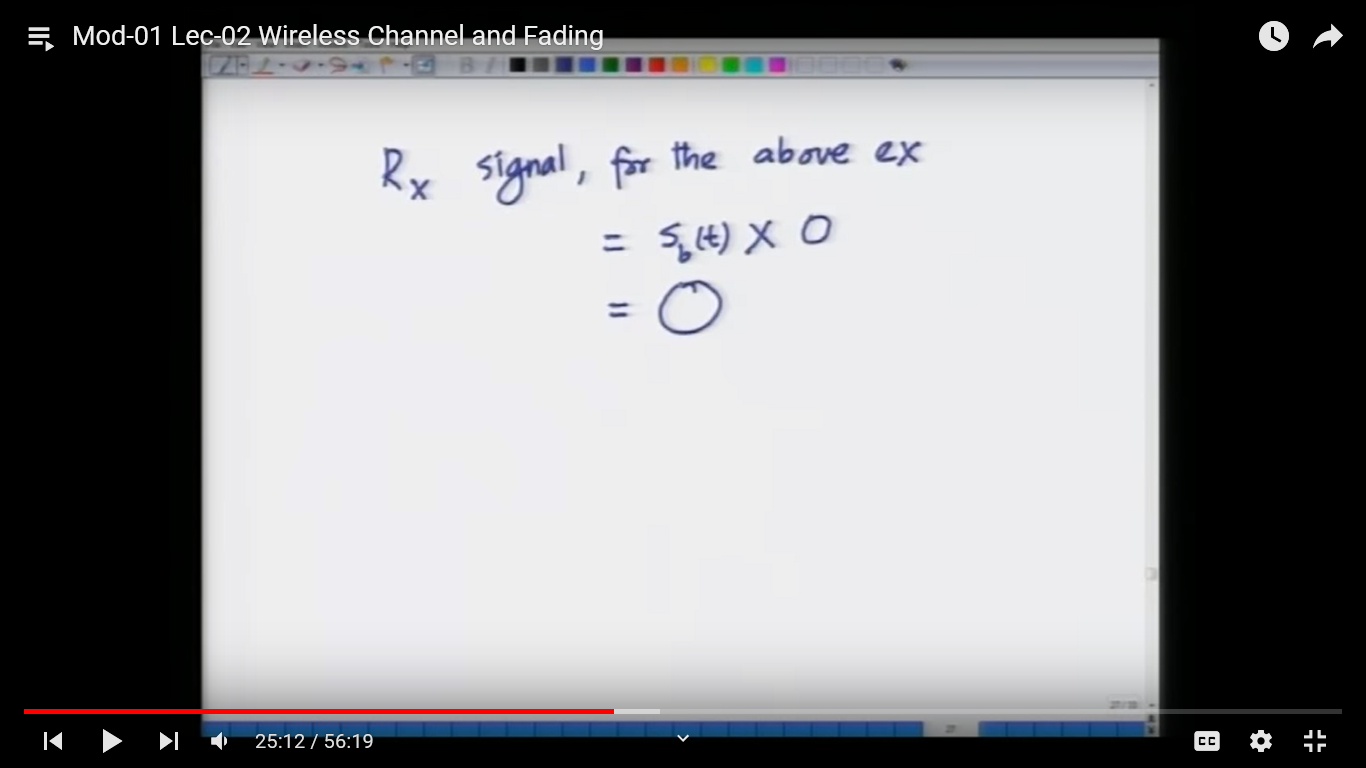 Mod-01 Lec-02 Wireless Channel and Fading
B I
Rx signal, for the above ex
= s_b(t) X 0
= 0
25:12 / 56:19
CC